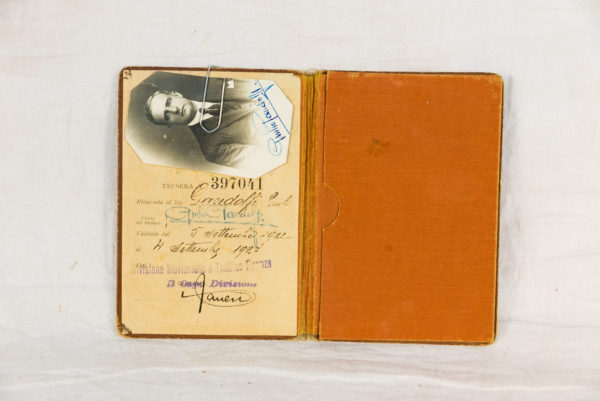 TESSERA N. 397041
Rilasciata al Sig. Gandolfi
Firma
del titolare
Valevole dal 5 Settembre 1922
al 4 Settembre 192
Divisione Movimento e Traffico Firenze
Il Capo Divisione